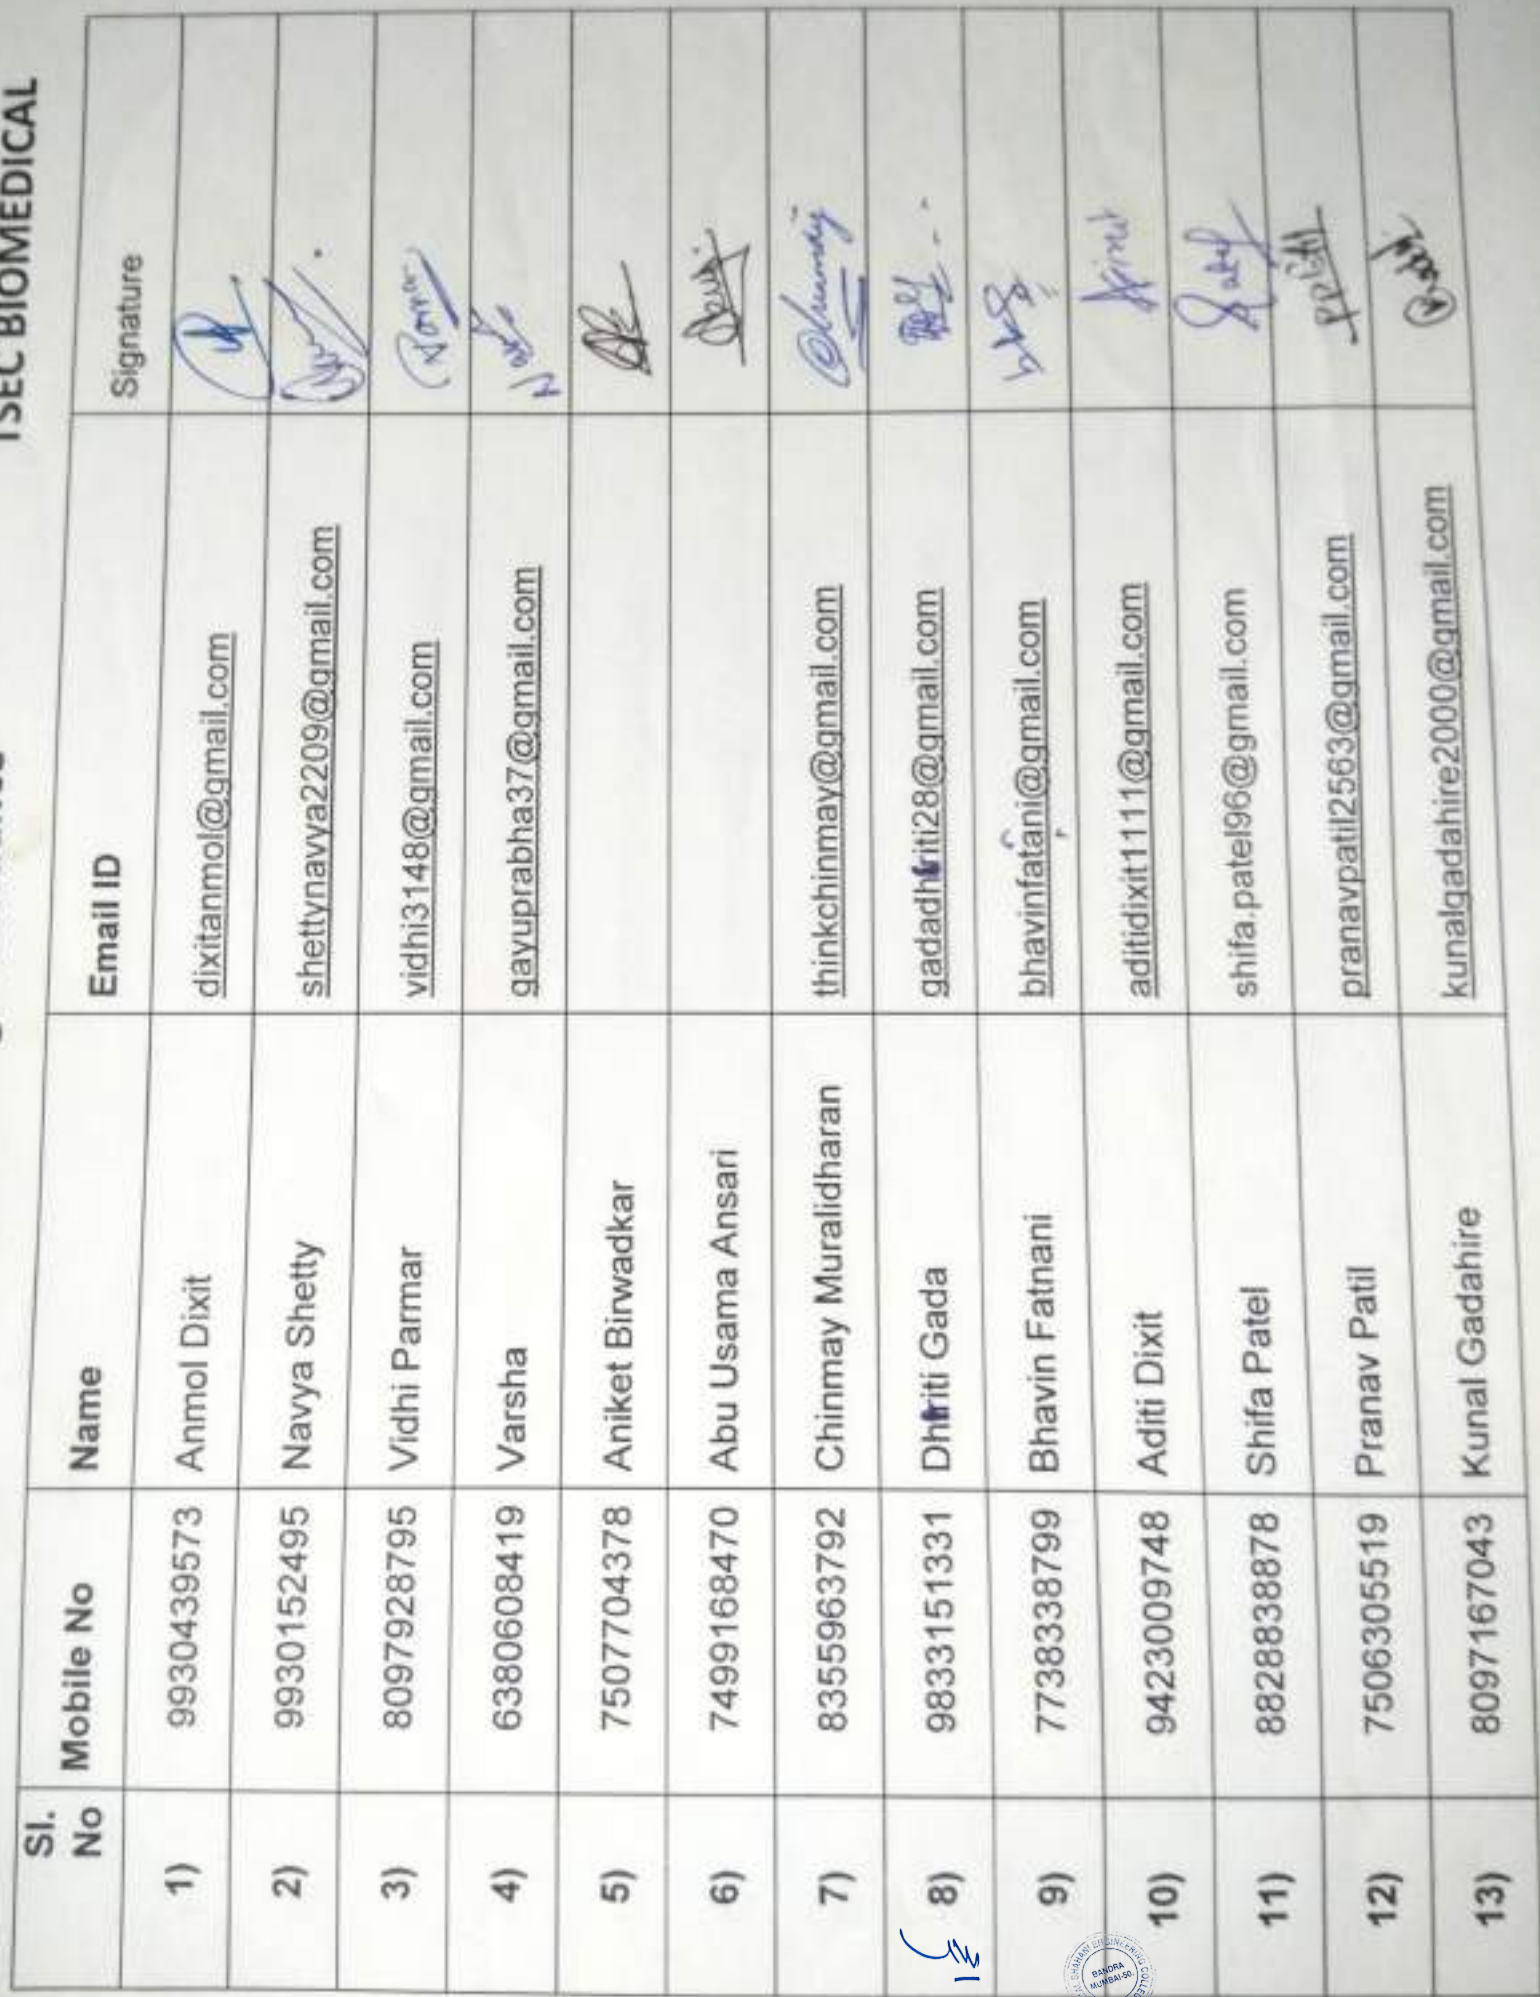 TSEC BIOMEDICAL
Sl. No Mobile No Name Email ID Signature
1) 9930439573 Anmol Dixit dixitanmol@gmail.com
2) 9930152495 Navya Shetty shettynavya2209@gmail.com
3) 8097928795 Vidhi Parmar vidhi3148@gmail.com
4) 6380608419 Varsha gayuprabha37@gmail.com
5) 7507704378 Aniket Birwadkar
6) 7499168470 Abu Usama Ansari
7) 8355963792 Chinmay Muralidharan thinkchinmay@gmail.com Chinmay
8) 9833151331 Dhriti Gada gadadhriti28@gmail.com
9) 7738338799 Bhavin Fatnani bhavinfatani@gmail.com
10) 9423009748 Aditi Dixit aditidixit1111@gmail.com
11) 8828838878 Shifa Patel shifa.patel96@gmail.com
12) 7506305519 Pranav Patil pranavpatil2563@gmail.com
13) 8097167043 Kunal Gadahire kunalgadahire2000@gmail.com
SHAHANI ENGINEERING
BANDRA
MUMBAI-50.